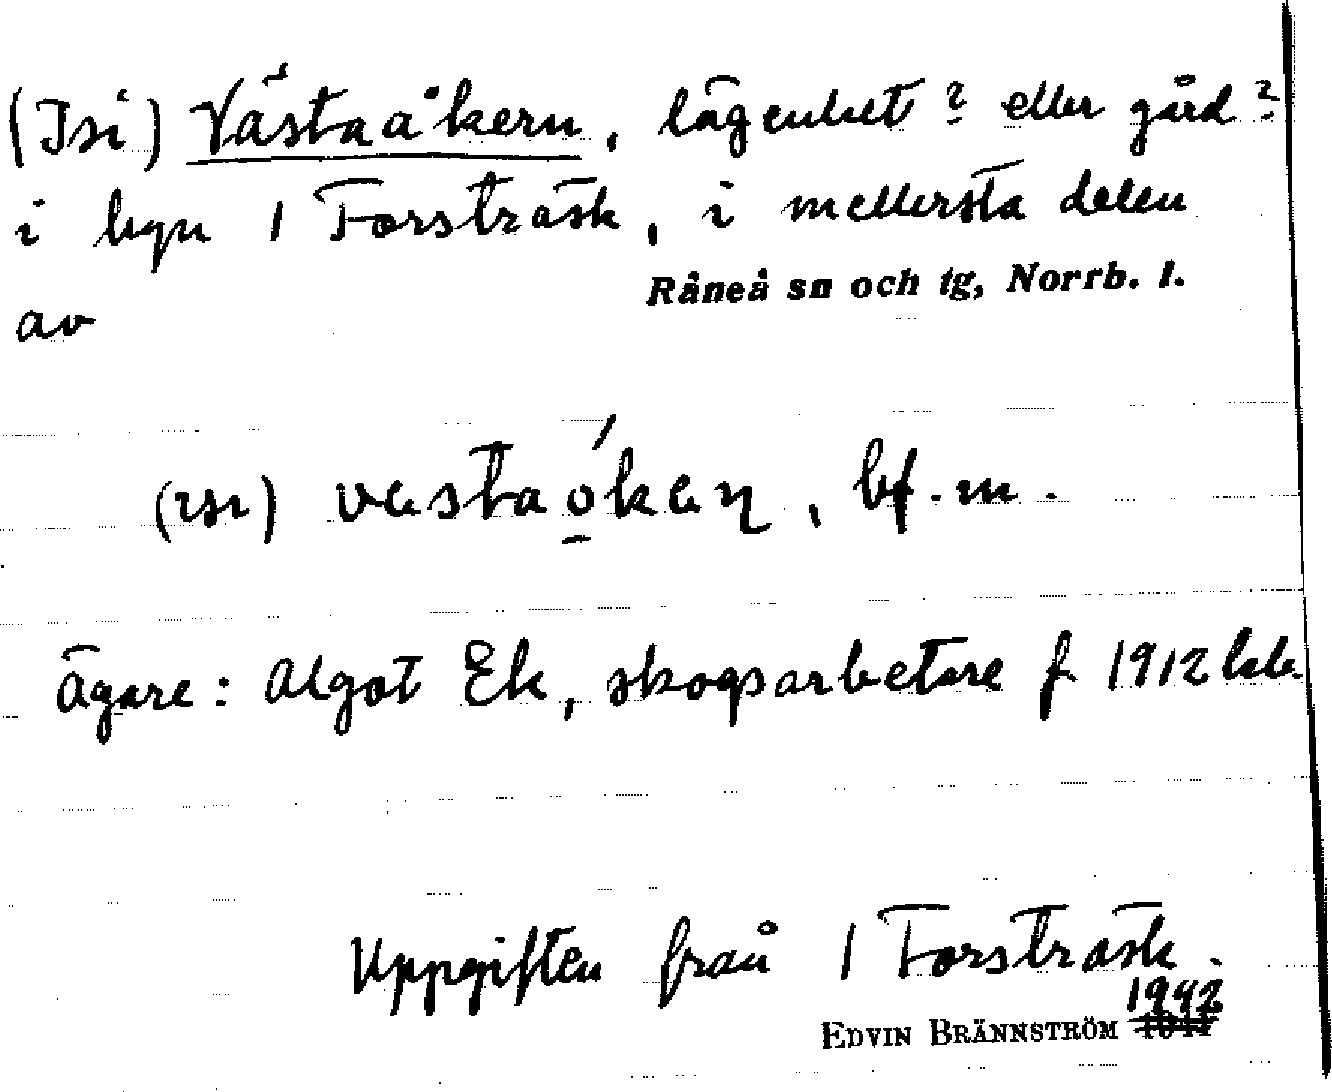 (Isi) Västaåkern, lägenhet? eller gård?
i byn 1 Forsträsk, i mellersta delen
av Råneå sn och tg, Norrb. l.
(ɪsɪ) vɛstaǫ́kɛɳ, bf. m.
Ägare: Algot Ek, skogsarbetare f 1912
Uppgiften från 1 Forsträsk.
EDVIN BRÄNNSTRÖM 1942